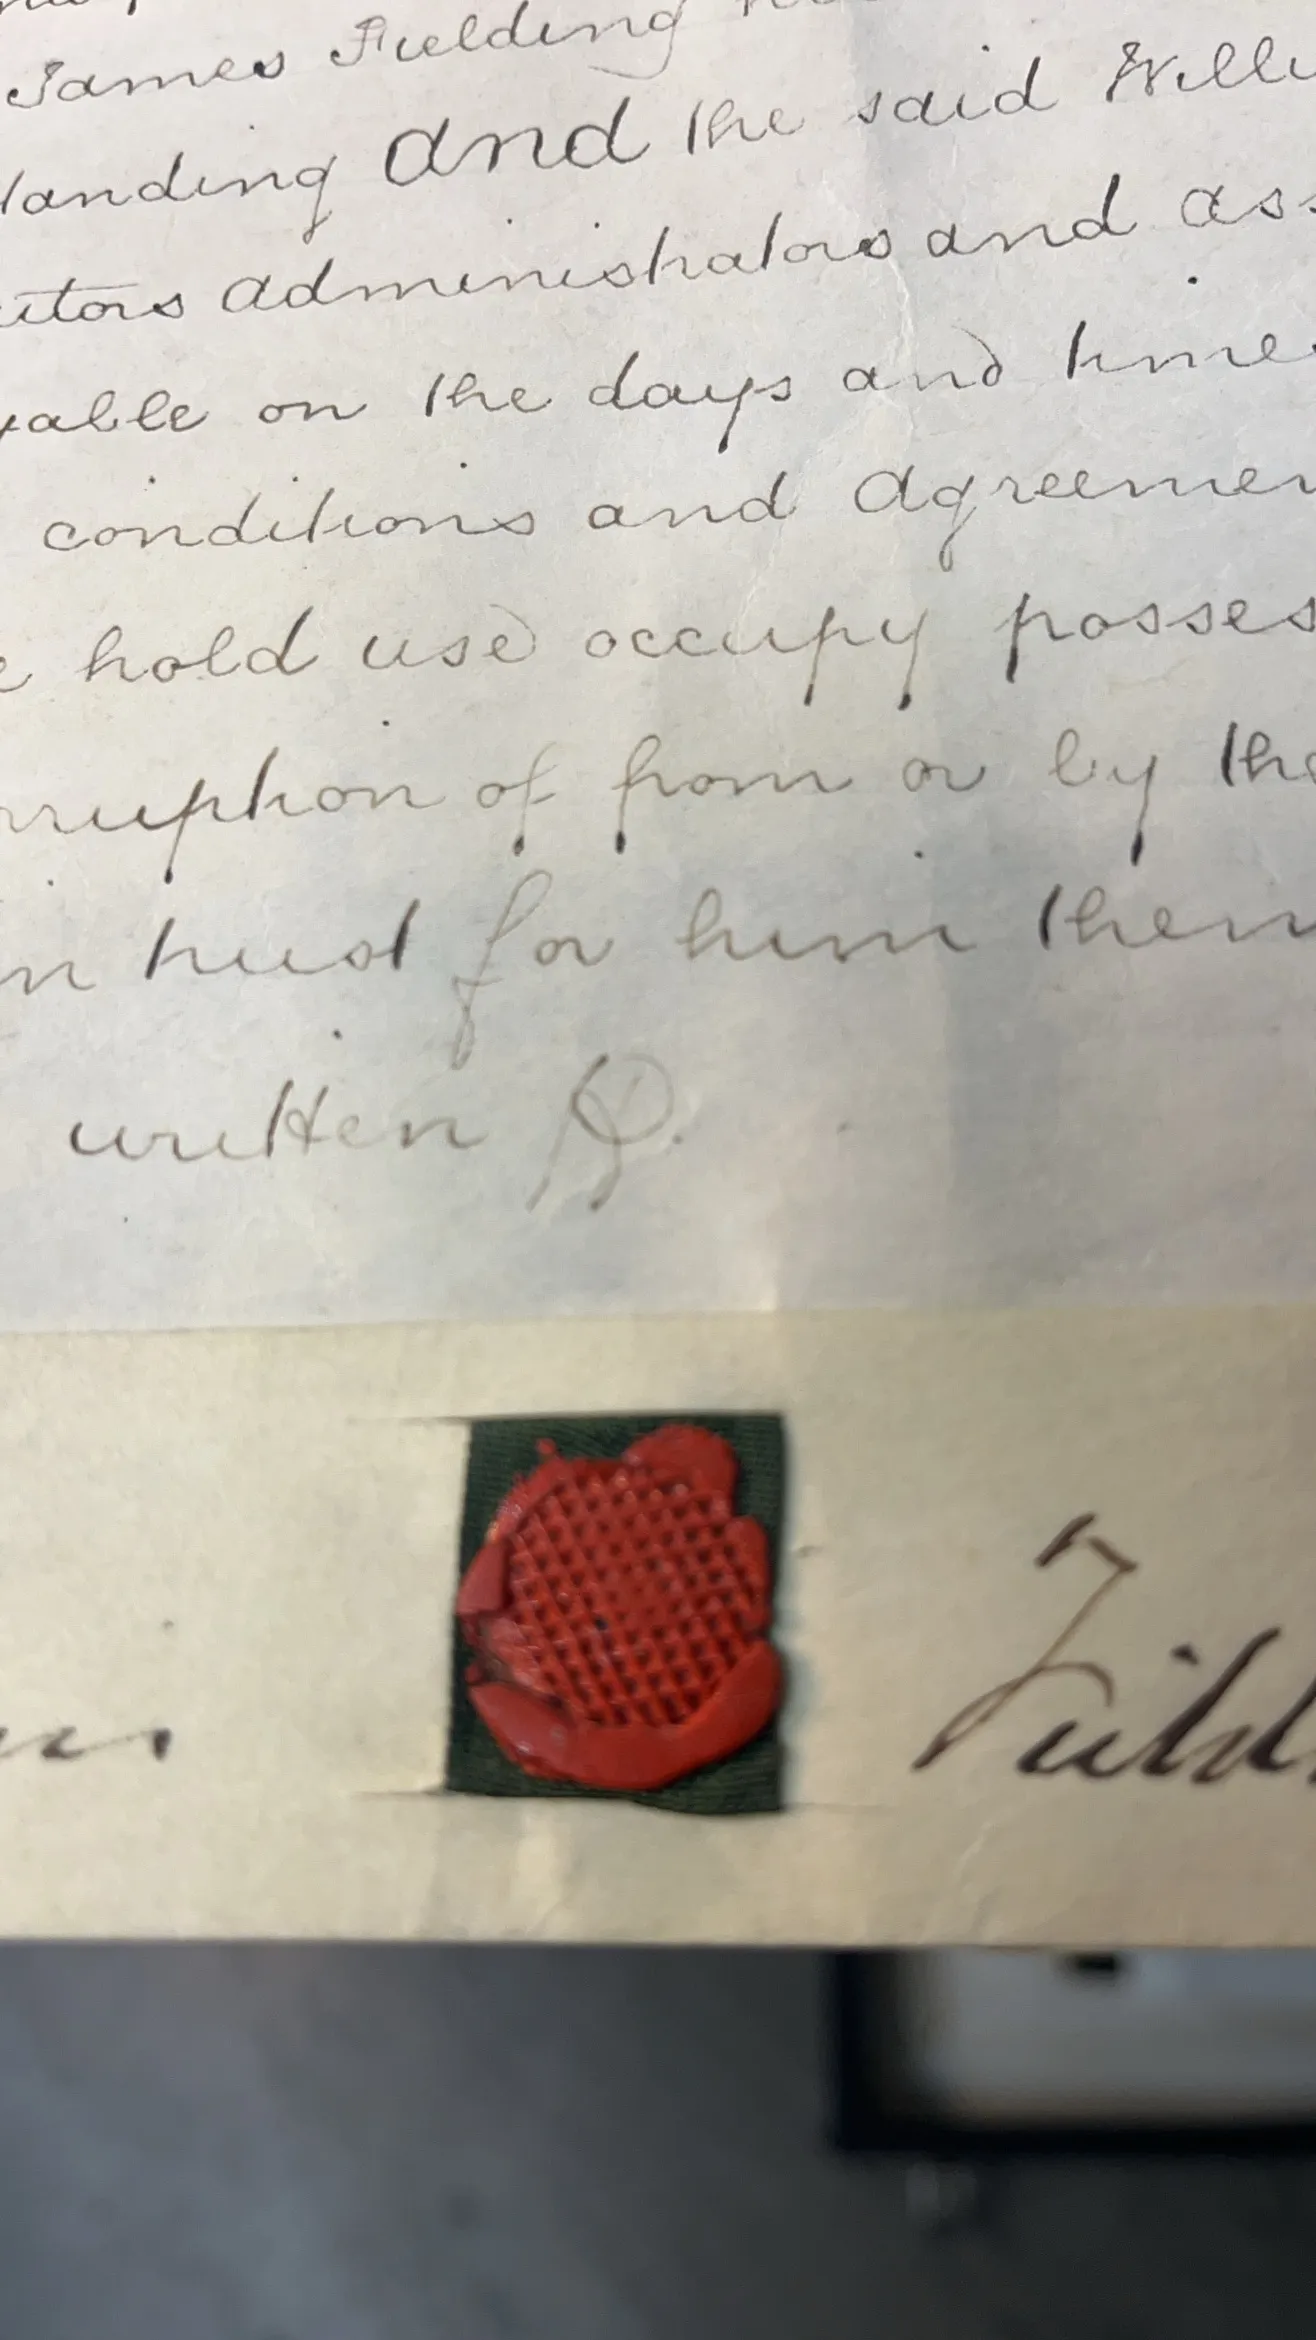 James Fielding
landing and the said Willi
utors administrators and ass
yable on the days and times
conditions and agreemen
e hold use occupy posses
rruption of from or by the
in trust for him them
written
Field